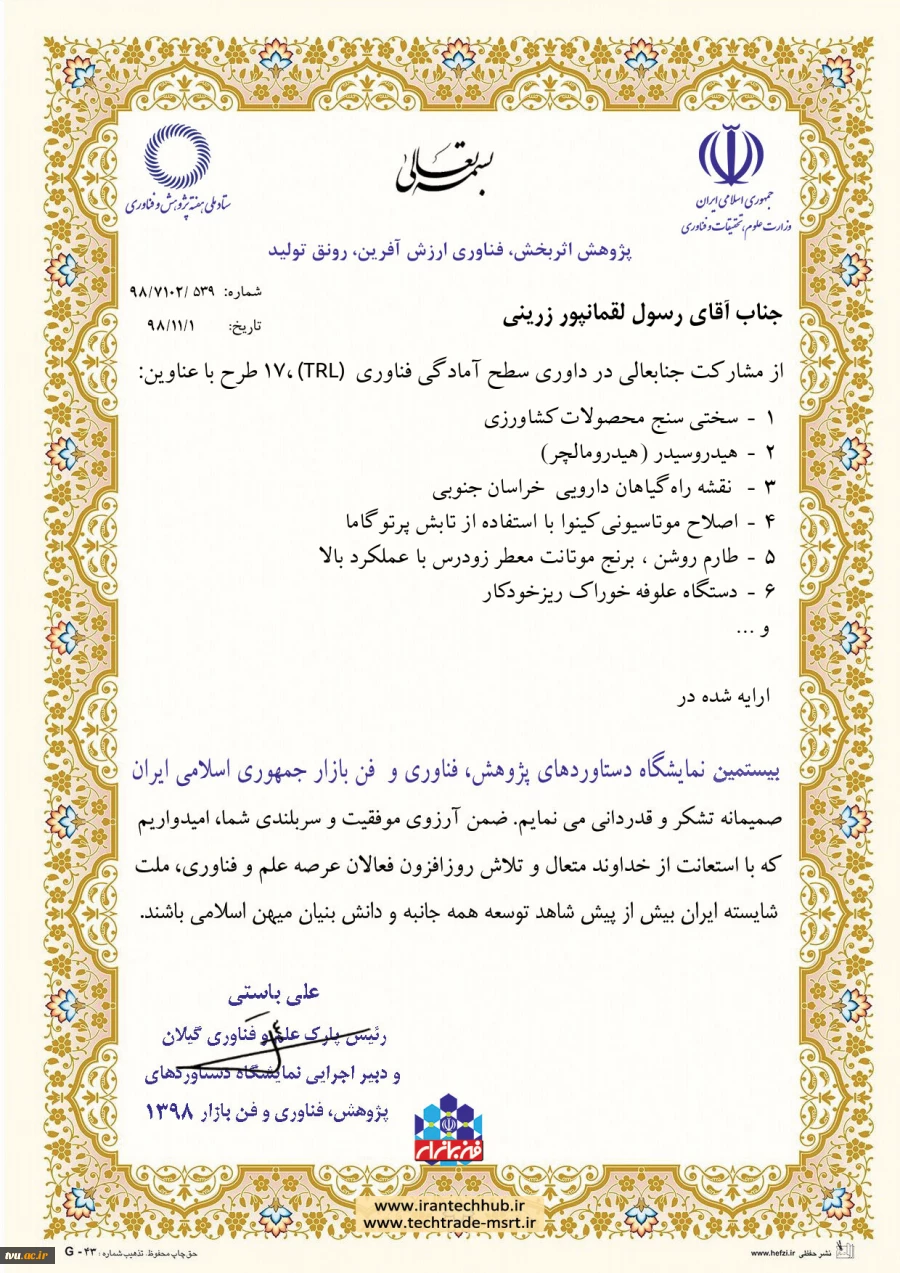 بسمه تعالی
جمهوری اسلامی ایران
وزارت علوم، تحقیقات و فناوری
ستاد ملی هفته پژوهش و فناوری
پژوهش اثربخش، فناوری ارزش آفرین، رونق تولید
شماره: ۵۳۹ /۹۸/۷۱۰۲
تاریخ: ۹۸/۱۱/۱
جناب آقای رسول لقمانپور زرینی
از مشارکت جنابعالی در داوری سطح آمادگی فناوری (TRL)، ۱۷ طرح با عناوین:
۱ - سختی سنج محصولات کشاورزی
۲ - هیدروسیدر (هیدرومالچر)
۳ - نقشه راه گیاهان دارویی خراسان جنوبی
۴ - اصلاح موتاسیونی کینوا با استفاده از تابش پرتو گاما
۵ - طارم روشن ، برنج موتانت معطر زودرس با عملکرد بالا
۶ - دستگاه علوفه خوراک ریزخودکار
و ...
ارایه شده در
بیستمین نمایشگاه دستاوردهای پژوهش، فناوری و فن بازار جمهوری اسلامی ایران
صمیمانه تشکر و قدردانی می نمایم. ضمن آرزوی موفقیت و سربلندی شما، امیدواریم
که با استعانت از خداوند متعال و تلاش روزافزون فعالان عرصه علم و فناوری، ملت
شایسته ایران بیش از پیش شاهد توسعه همه جانبه و دانش بنیان میهن اسلامی باشند.
علی باستی
رئیس پارک علم و فناوری گیلان
و دبیر اجرایی نمایشگاه دستاوردهای
پژوهش، فناوری و فن بازار ۱۳۹۸
فن بازار
www.irantechhub.ir
www.techtrade-msrt.ir
نشر حفظی www.hefzi.ir
حق چاپ محفوظ. تذهیب شماره : G - ۴۳
tvu.ac.ir